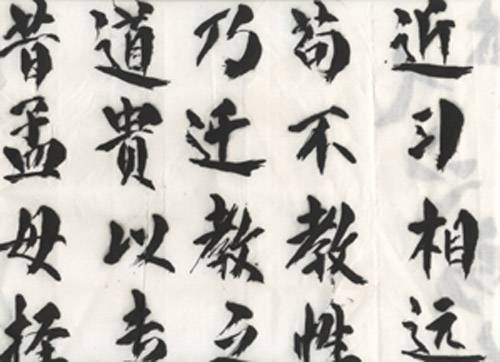 近习相远
苟不教性
乃迁教之
道貴以专
昔孟母择